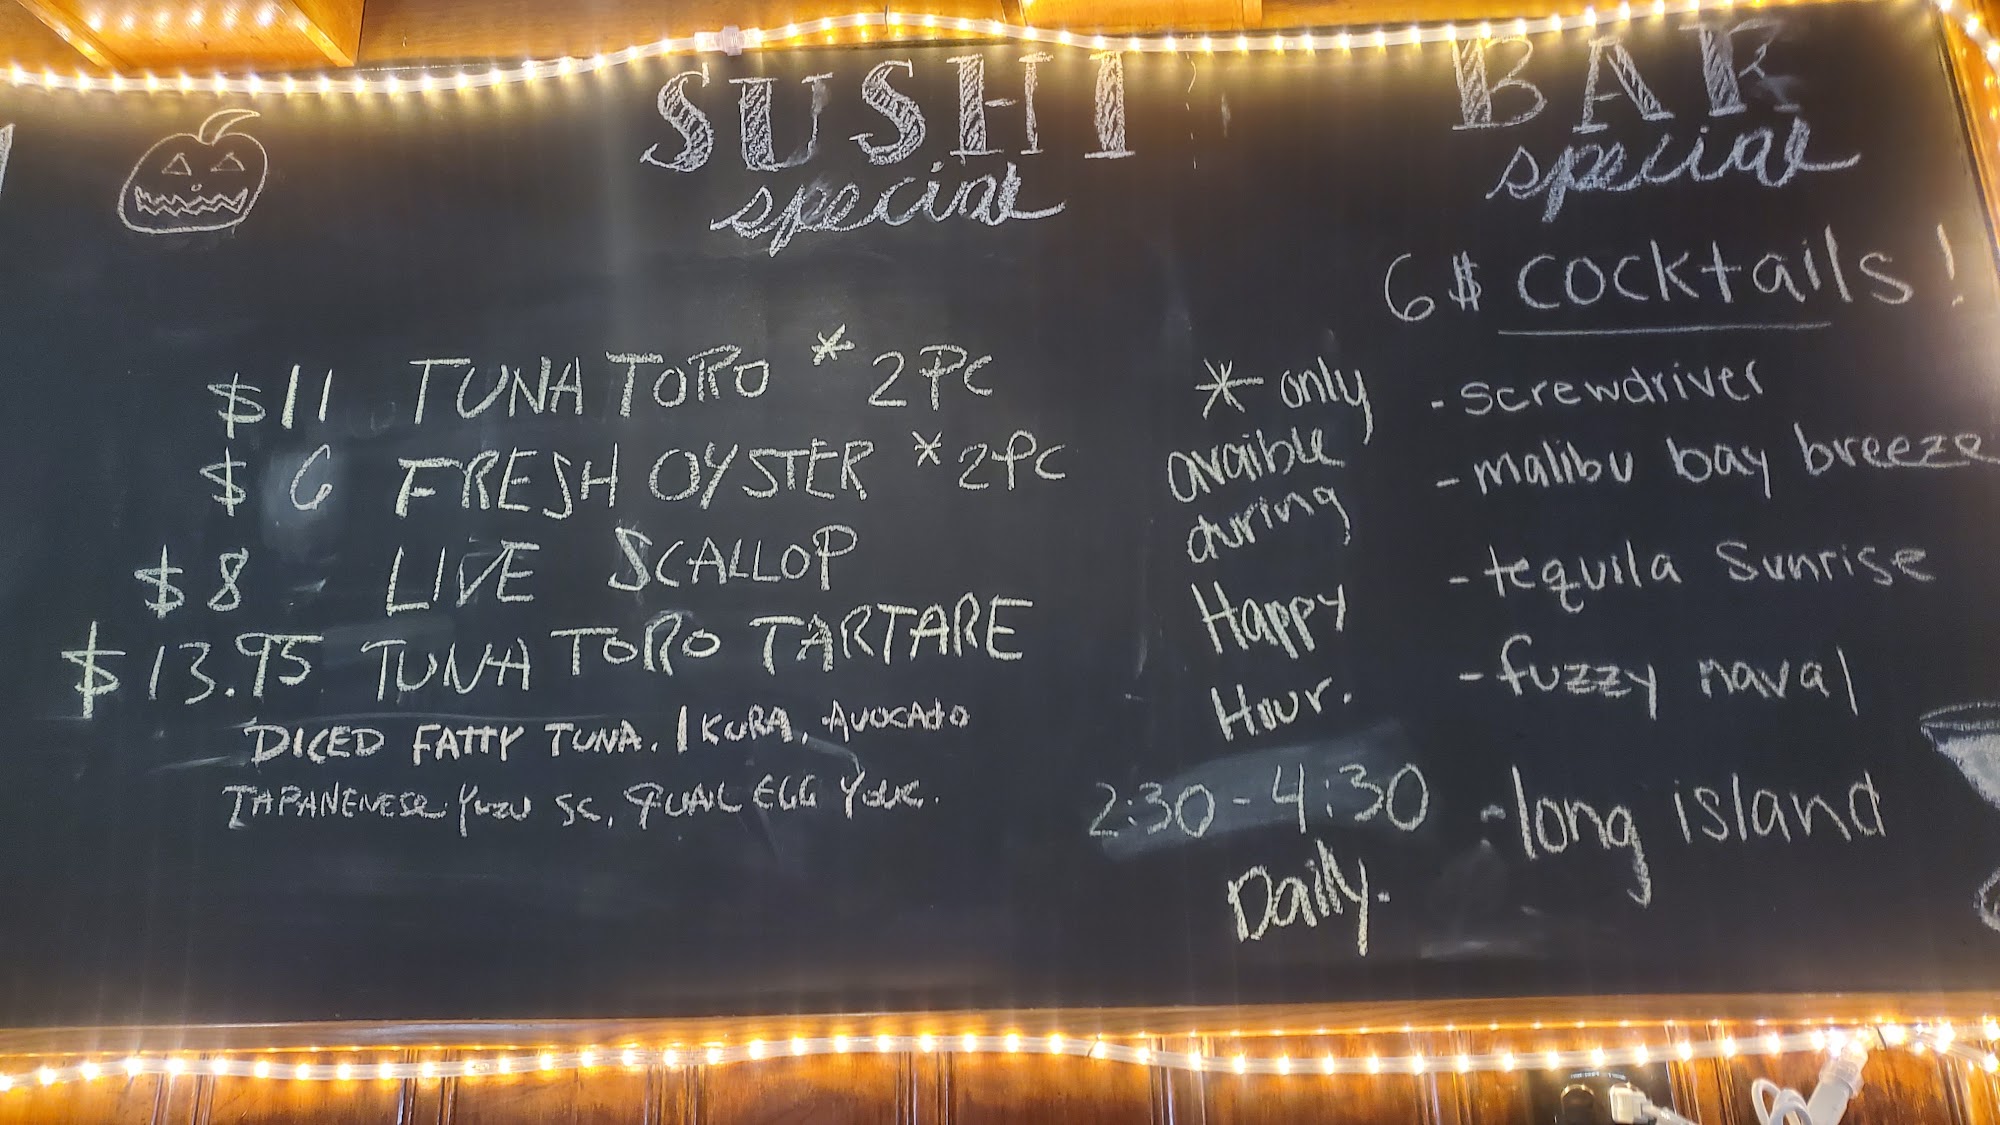 SUSHI
special
$11 TUNA TORO * 2PC
$6 FRESH OYSTER * 2PC
$8 LIVE SCALLOP
$13.95 TUNA TORO TARTARE
DICED FATTY TUNA, IKURA, AVOCADO
JAPANENESE YUZU SC, QUAIL EGG YOLK.
BAR
special
6$ cocktails!
* only
avaible
during
Happy
Hour.
2:30 - 4:30
Daily.
- screwdriver
- malibu bay breeze
- tequila sunrise
- fuzzy naval
- long island